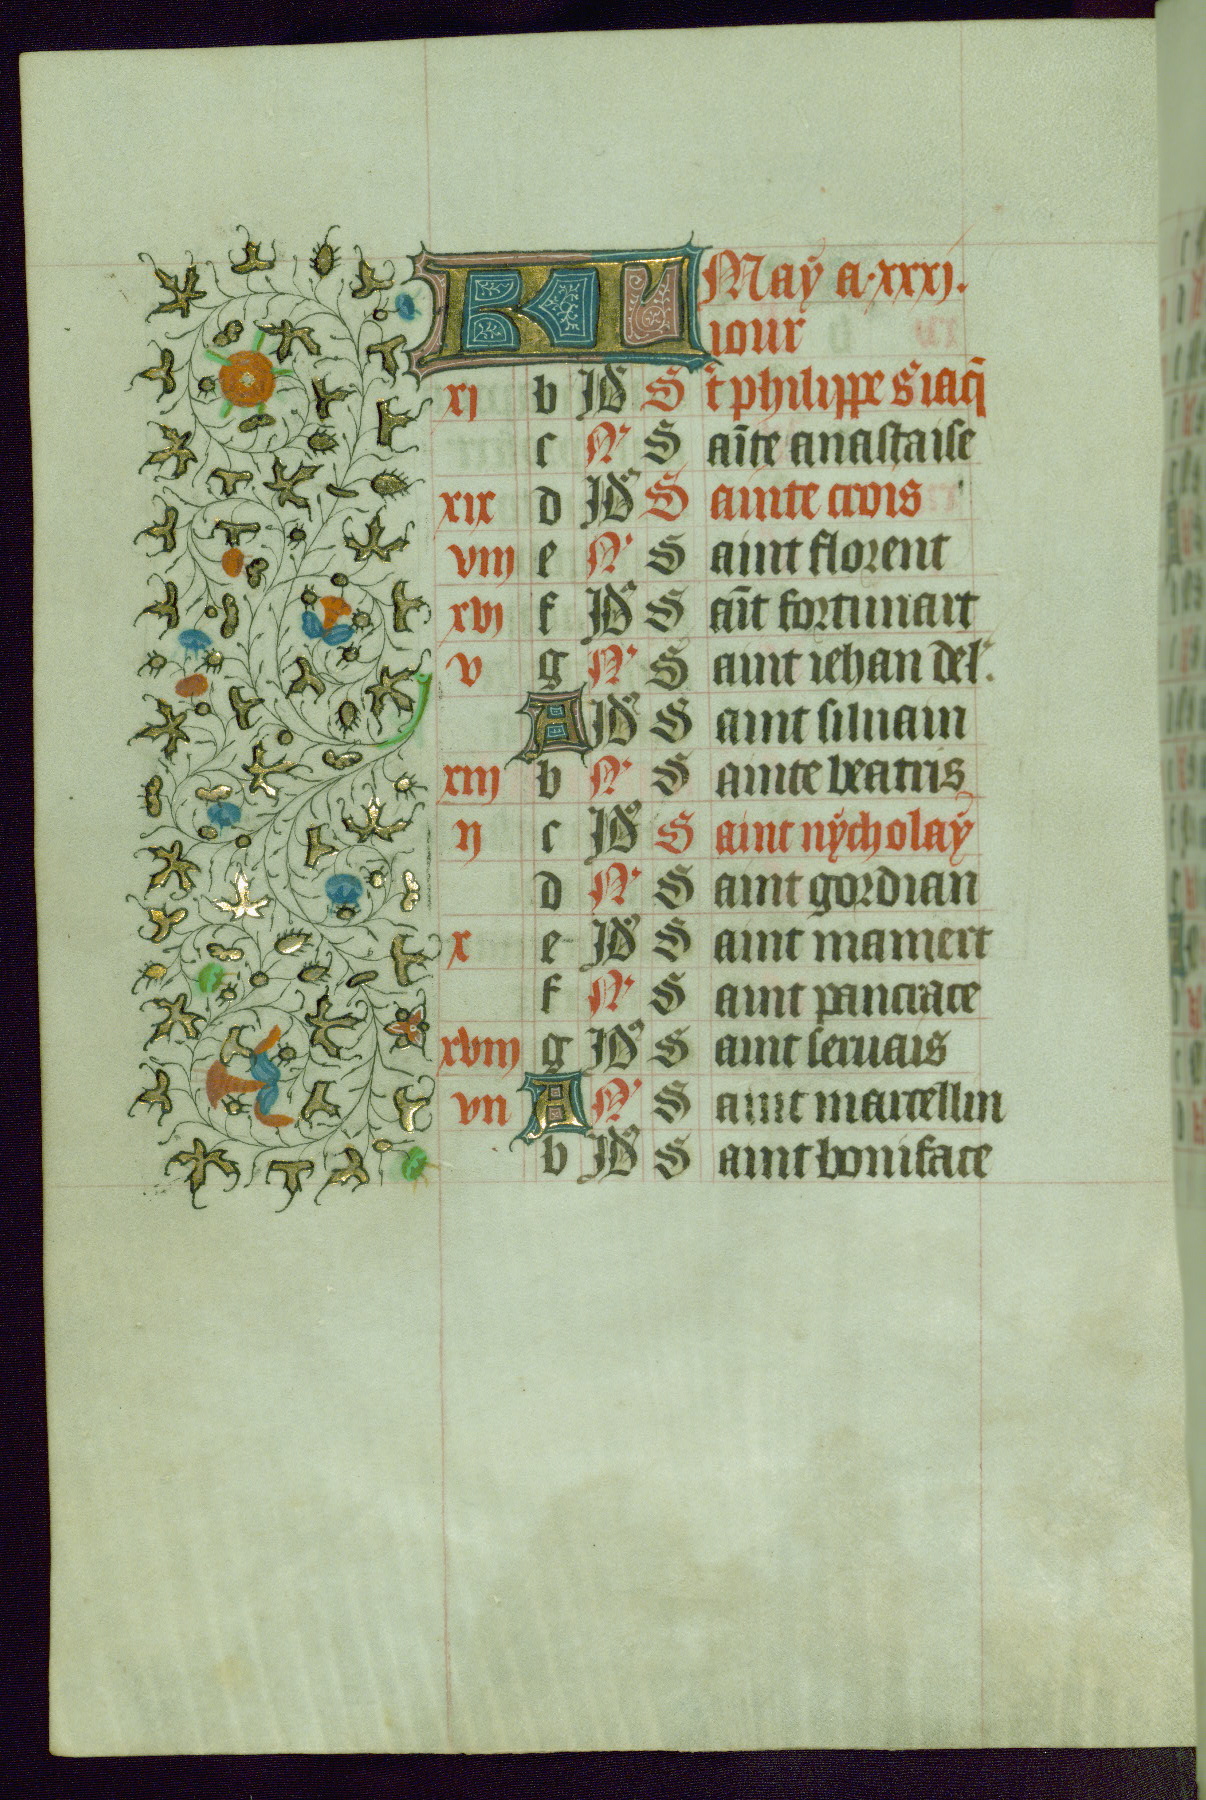 KL May a·xxxj.
iour
xj b Jd S t philippe s iaq̄
c N S aīte anastaise
xix d Jd S ainte crois
viij e N S aint florent
xvj f Jd S aīt fortunart
v g N S aint iehan del'.
A Jd S aint siluain
xiij b N S ainte beatris
ij c Jd S aint nÿcholaÿ
d N S aint gordian
x e Jd S aint mamert
f N S aint pancrace
xviij g Jd S aint seruais
vij A N S aint martellin
b Jd S aint boniface